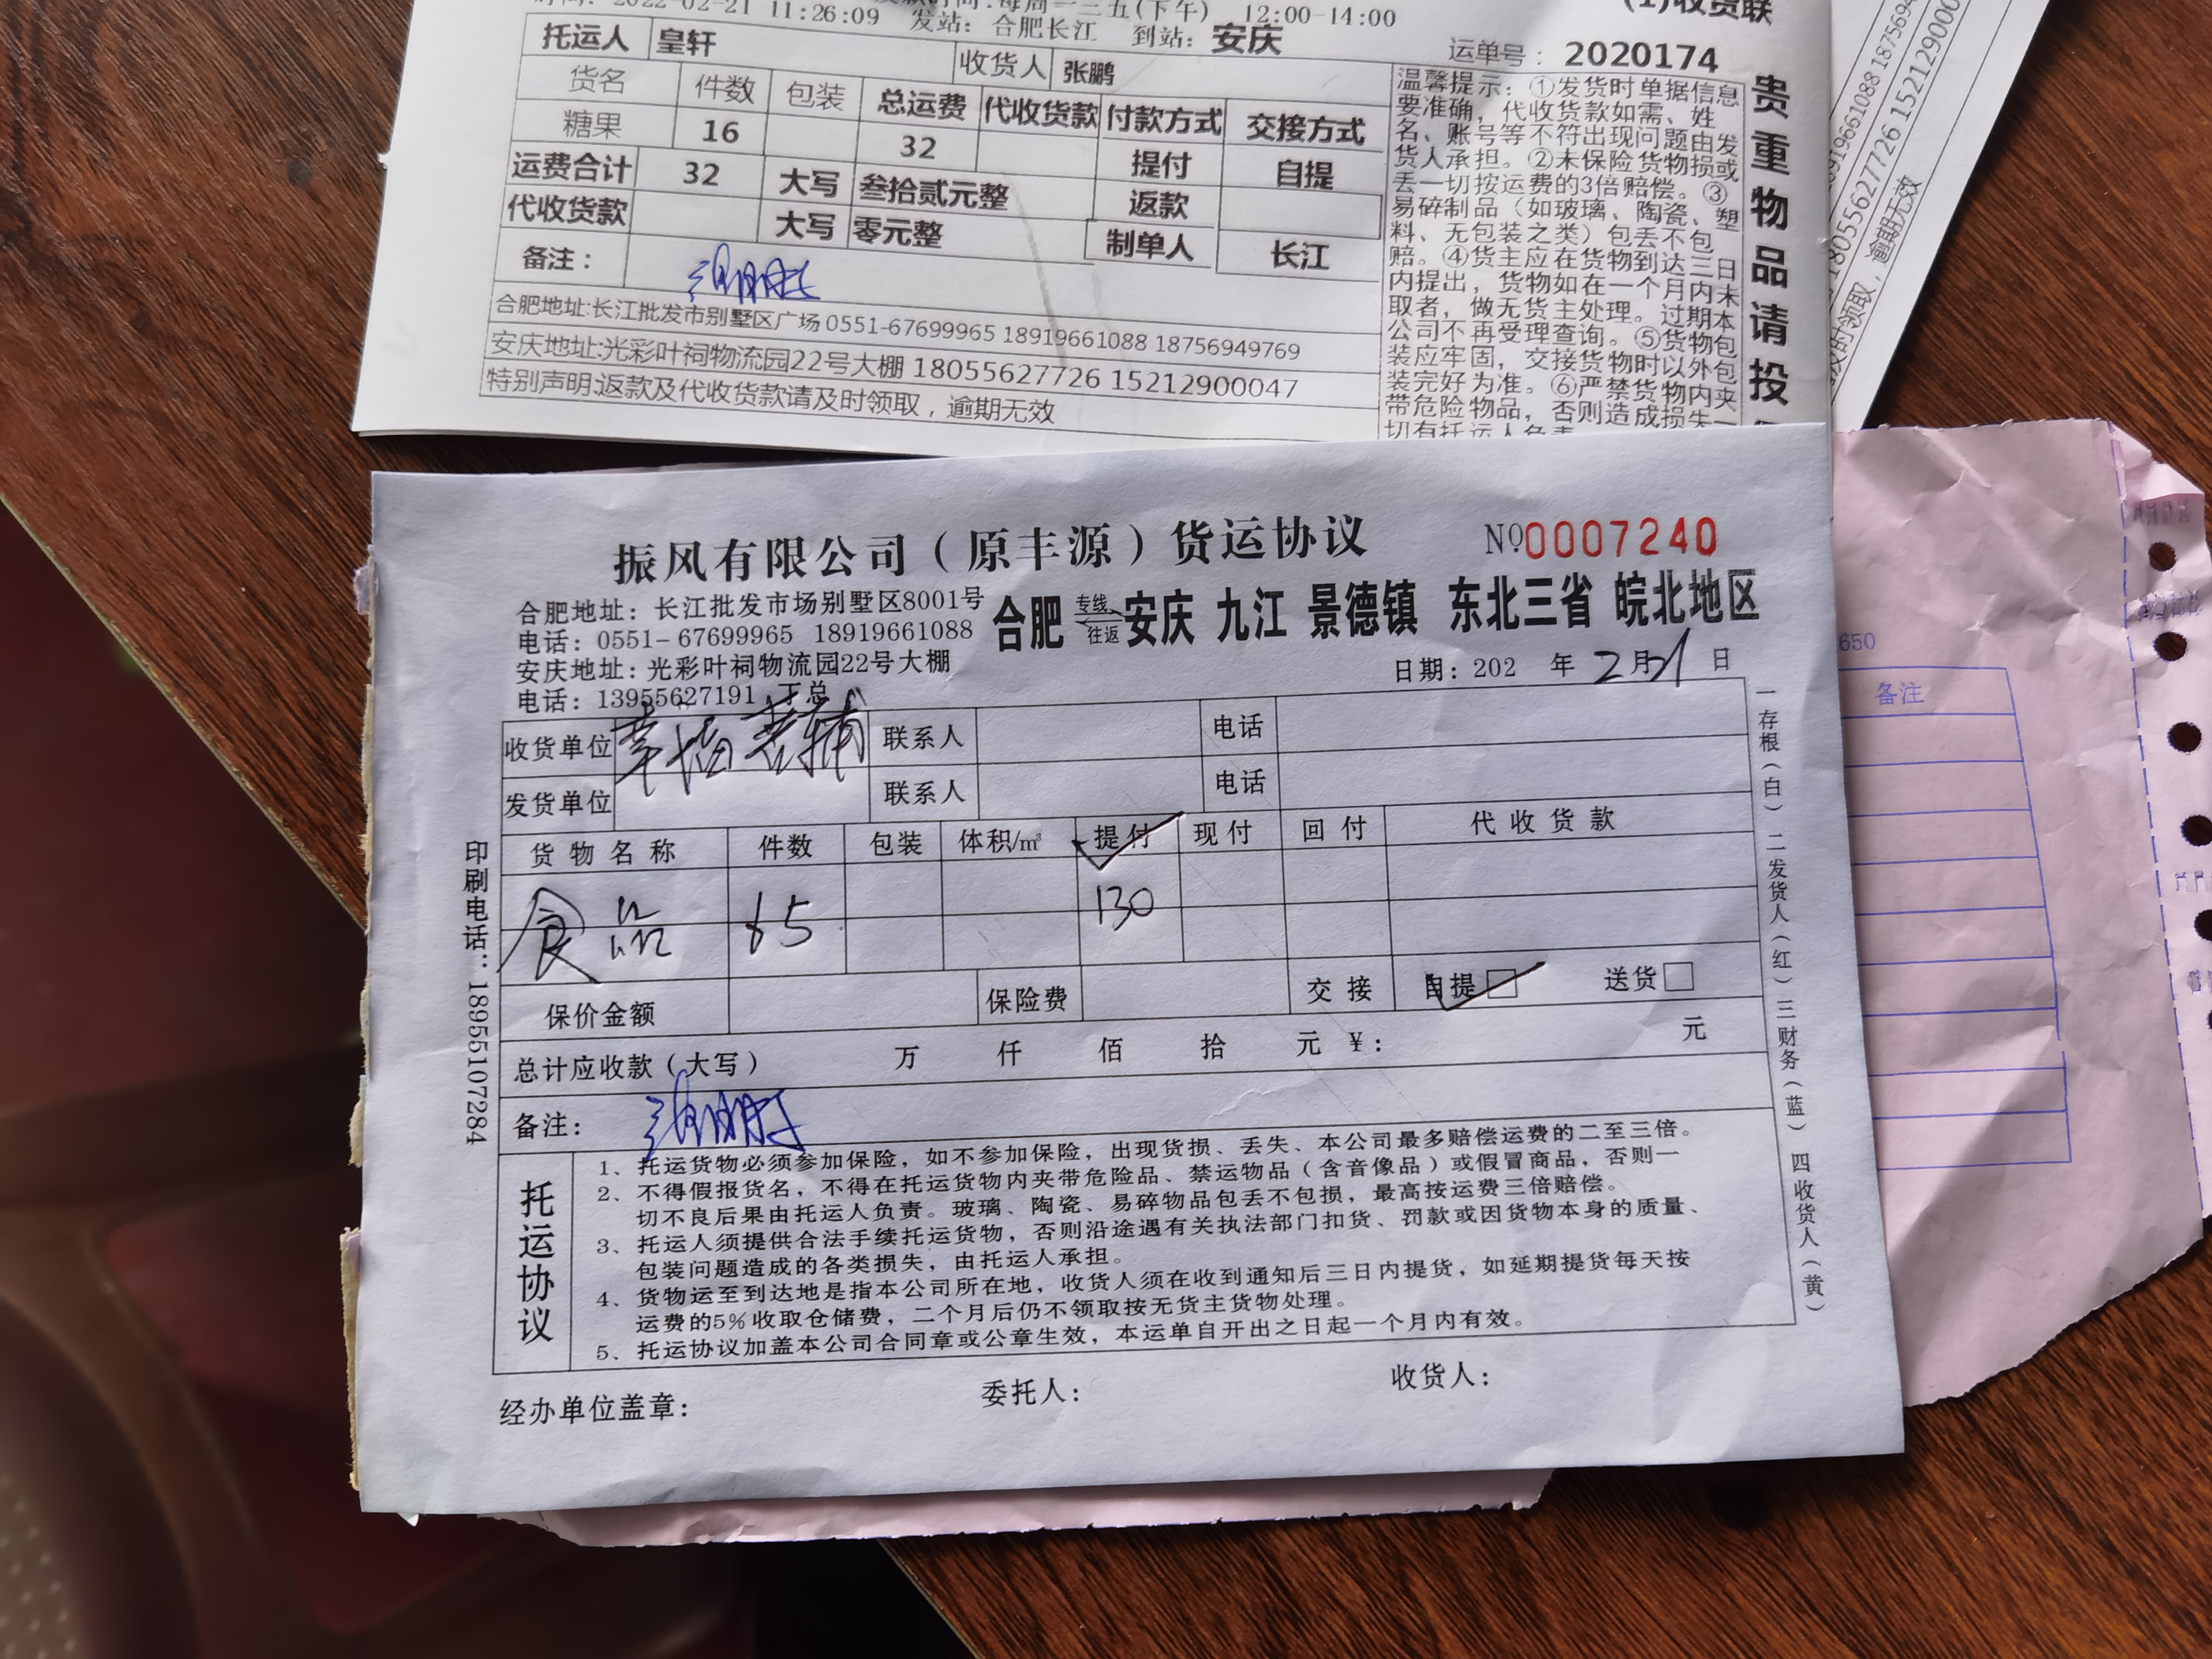 2022-02-21 11:26:09
(下午) 12:00-14:00
发站: 合肥长江 到站: 安庆
(1)收货联
运单号: 2020174
托运人 皇轩 收货人 张鹏
货名 件数 包装 总运费 代收货款 付款方式 交接方式
糖果 16 32 提付 自提
运费合计 32 大写 叁拾贰元整 返款
代收货款 大写 零元整 制单人 长江
备注:
合肥地址:长江批发市别墅区广场 0551-67699965 18919661088 18756949769
安庆地址:光彩叶祠物流园22号大棚 18055627726 15212900047
特别声明:返款及代收货款请及时领取，逾期无效
温馨提示: ①发货时单据信息
要准确，代收货款如需、姓
名、账号等不符出现问题由发
货人承担。②未保险货物损或
丢一切按运费的3倍赔偿。③
易碎制品（如玻璃、陶瓷、塑
料、无包装之类）包丢不包
赔。④货主应在货物到达三日
内提出，货物如在一个月内未
取者，做无货主处理。过期本
公司不再受理查询。⑤货物包
装应牢固，交接货物时以外包
装完好为准。⑥严禁货物内夹
带危险物品，否则造成损失一
切有托运人负责
贵重物品请投
18055627726 15212900
领取，逾期无效
振风有限公司（原丰源）货运协议 №0007240
合肥地址: 长江批发市场别墅区8001号
电话: 0551-67699965 18919661088
安庆地址: 光彩叶祠物流园22号大棚
电话: 13955627191 丁总
合肥 专线往返 安庆 九江 景德镇 东北三省 皖北地区
日期: 202 年 2月21日
收货单位 幸福 联系人 电话
发货单位 联系人 电话
货物名称 件数 包装 体积/㎡ 提付 现付 回付 代收货款
食品 65 130
保价金额 保险费 交接 自提□ 送货□
总计应收款（大写） 万 仟 佰 拾 元 ¥: 元
备注:
托运协议
1、托运货物必须参加保险，如不参加保险，出现货损、丢失、本公司最多赔偿运费的二至三倍。
2、不得假报货名，不得在托运货物内夹带危险品、禁运物品（含音像品）或假冒商品，否则一
切不良后果由托运人负责。玻璃、陶瓷、易碎物品包丢不包损，最高按运费三倍赔偿。
3、托运人须提供合法手续托运货物，否则沿途遇有关执法部门扣货、罚款或因货物本身的质量、
包装问题造成的各类损失，由托运人承担。
4、货物运至到达地是指本公司所在地，收货人须在收到通知后三日内提货，如延期提货每天按
运费的5%收取仓储费，二个月后仍不领取按无货主货物处理。
5、托运协议加盖本公司合同章或公章生效，本运单自开出之日起一个月内有效。
经办单位盖章: 委托人: 收货人:
印刷电话: 18955107284
一存根（白） 二发货人（红） 三财务（蓝） 四收货人（黄）
650
备注